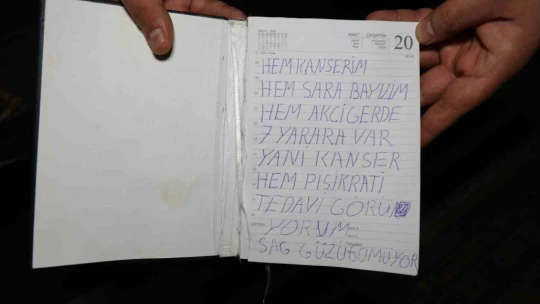 20
HEM KANSERİM
HEM SARA BAYNIM
HEM AKCİGERDE
7 YARARA VAR
YANİ KANSER
HEM PİŞİKRATİ
TEDAVİ GORÜ
YORUM
SAG GÜZÜGÖMÜYOR